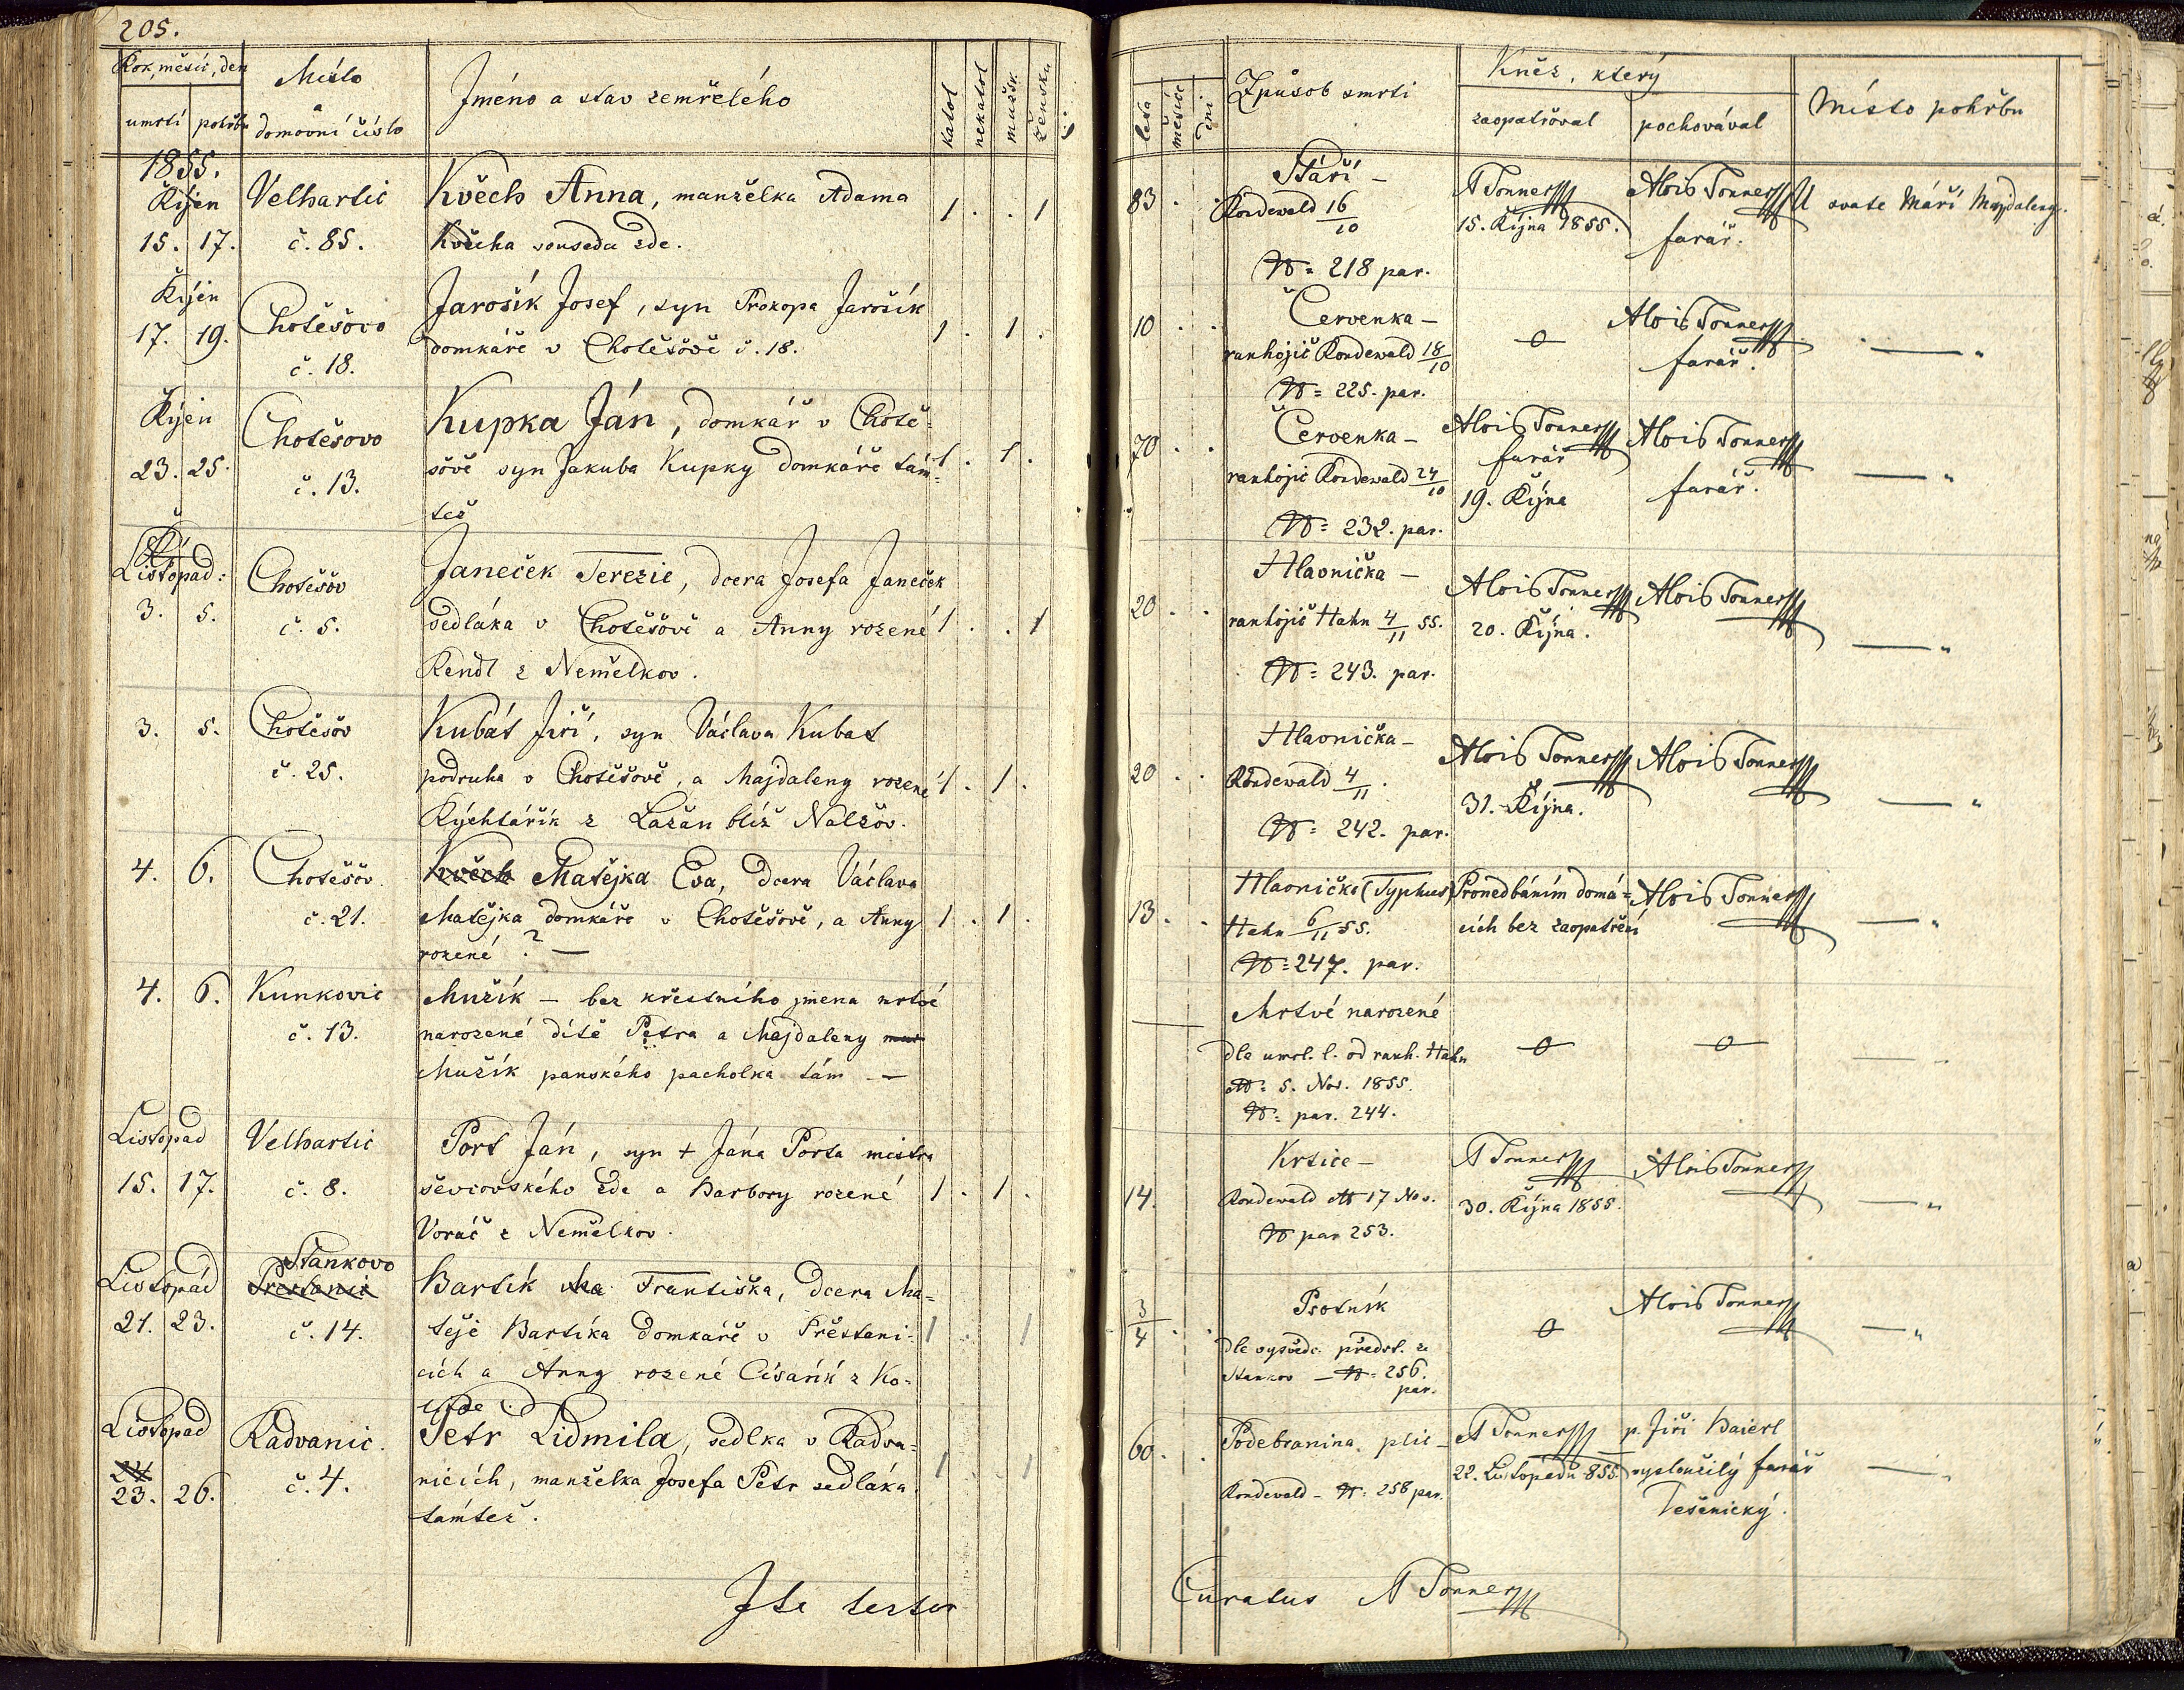 205.
Rok, měsíc, den
umrtí pohřbu
Místo
a
domovní číslo
Jméno a stav zemřelého
katol
nekatol
mužsk.
ženska
1855.
Řijen
15. 17.
Velhartic
č. 85.
Kvěch Anna, manželka Adama
Kvěcha souseda zde.
1 . . 1
Řijen
17. 19.
Chotěšovo
č. 18.
Jarošík Josef, syn Prokopa Jarošík
domkáře v Chotěšově č. 18.
1 . 1 .
Řijen
23. 25.
Chotěšovo
č. 13.
Kupka Ján, domkář v Chotě=
šově syn Jakuba Kupky domkáře tám=
též
1 . 1 .
Listopad:
3. 5.
Chotěšov
č. 5.
Janeček Terezie, dcera Josefa Janeček
sedláka v Chotěšově a Anny rozené
Rendl z Nemělkov.
1 . . 1
3. 5.
Chotěšov
č. 25.
Kubát Jiří, syn Václava Kubat
podruha v Chotěšově, a Majdaleny rozené
Rýchtářík z Lažan blíž Nalžov.
1 . 1 .
4. 6.
Chotěšov.
č. 21.
Kvěch Matějka Eva, dcera Václava
Matějka domkáře v Chotěšově, a Anny
rozené ? —
1 . 1 .
4. 6.
Kunkovic
č. 13.
Mužík – bez křestního jmena mrtvé
narozené dítě Petra a Majdaleny
Mužík panského pacholka tám —
Listopad
15. 17.
Velhartic
č. 8.
Port Ján, syn + Jána Porta mistra
ševcovského zde a Barbory rozené
Voráč z Nemělkov.
1 . 1 .
Listopád
21. 23.
Stankovo
Přestanic
č. 14.
Bartík Ma Františka, dcera Ma=
těje Bartíka domkáře v Přestani=
cích a Anny rozené Císařík z Ko=
1 . 1
Listopad
24
23. 26.
Radvanic.
č. 4.
Petr Lidmila, sedlka v Radva=
nicích, manželka Josefa Petr sedláka
támtéž.
1 . 1
Ita testor
leta
měsíce
dni
Způsob smrti
Kněz, který
zaopatřoval
pochovával
Místo pohřbu
83 . .
Stáří –
Rondewald 16/10
N= 218 par.
A Tonner
15. Října 1855.
Alois Tonner
farář.
U svaté Máří Majdaleny.
10 . .
Červenka –
ranhojič Rondewald 18/10
N= 225. par.
0
Alois Tonner
farář.
— "
70 . .
Červenka –
ranhojič Rondewald 24/10
N= 232. par.
Alois Tonner
farář
19. Října
Alois Tonner
farář.
— "
20 . .
Hlavnička –
ranhojič Hahn 4/11 55.
N= 243. par.
Alois Tonner
20. Října.
Alois Tonner
— "
20 . .
Hlavnička –
Rondewald 4/11.
N= 242. par.
Alois Tonner
31. Října.
Alois Tonner
— "
13. .
Hlavnička (Typhus)
Hahn 6/11 55.
N= 247. par.
Pronedbáním domá=
cích bez zaopatření
Alois Tonner
— "
Mrtvé narozené
dle umrl. l. od ranh. Hahn
5. Nov. 1855.
N= par. 244.
0
0
—
14.
Krtice –
Rondewald 17 Nov.
N par 253.
A Tonner
30. Října 1855.
Alois Tonner
— "
3/4 . .
Psotník
dle vysvědč. předst. z
Stankov – N= 256.
par.
0
Alois Tonner
— "
60. .
Podebranina plic –
Rondewald – N: 258 par.
A Tonner
22. Listopadu 855.
p. Jiří Baierl
vysloužilý farář
Těšenický.
— "
Curatus A Tonner